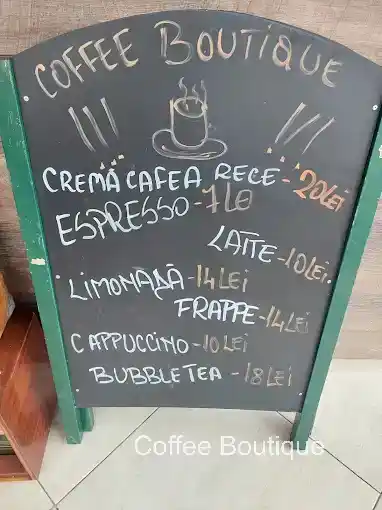 COFFEE BOUTIQUE
CREMĂ CAFEA RECE - 20LEI
ESPRESSO - 7LEI
LATTE - 10LEI.
LIMONADĂ - 14LEI
FRAPPE - 14LEI
CAPPUCCINO - 10LEI
BUBBLE TEA - 18LEI
Coffee Boutique